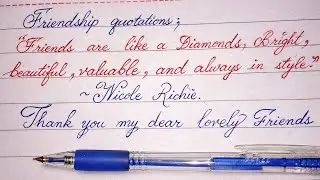 Friendship quotations;
"Friends are like a Diamonds, Bright,
beautiful, valuable, and always in style."
~Nicole Richie.
Thank you my dear lovely Friends